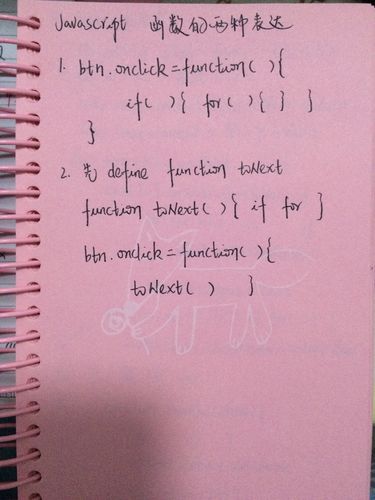 Javascript 函数的两种表达
1. btn.onclick=function( ){
if( ){ for( ){ } }
}
2. 先 define function toNext
function toNext( ){ if for }
btn.onclick=function( ){
toNext( ) }